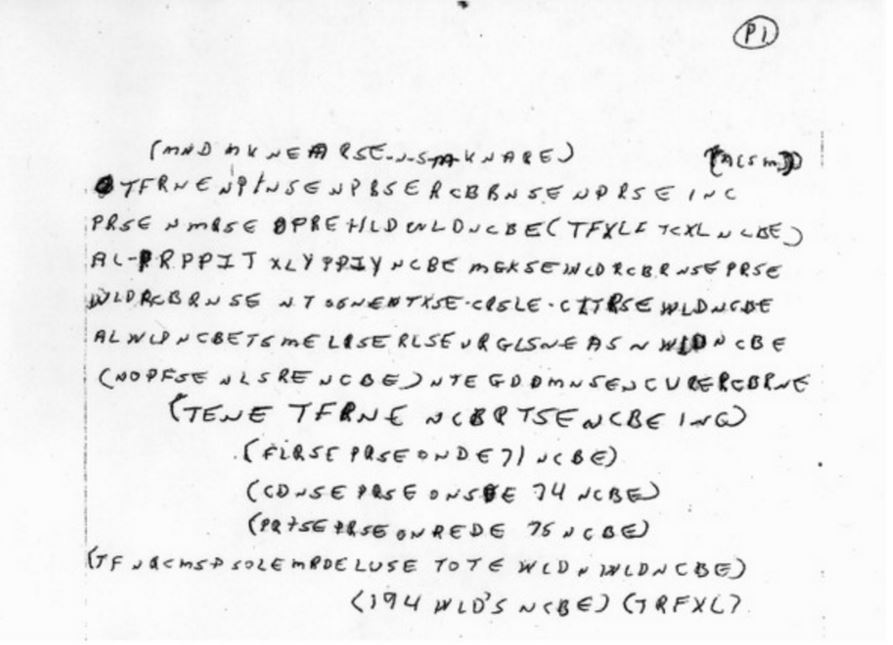 P1
(MND MKNEARSE-N-S-M-KNARE) (ACSM)
TFRNENPINSENPBSERCBBRNSENPRSEINC
PRSENMRSEOPREHLDWLDNCBE(TFXLFTCXLNCBE)
AL-PRPPITXLYPPIYNCBEMGKSEWLDRCBRNSEPRSE
WLDRCBRNSENTSGNENTXSE-CRSLE-CITRSEWLDNCBE
ALWLDNCBETSMELRSERLSEURGLSNEASNWLDNCBE
(NOPFSENLSRENCBE)NTEGDDMNSENCURERCBRNE
(TENETFRNENCBRTSENCBEINC)
(FLRSEPRSEONDE71NCBE)
(CDNSEPRSEONSDE74NCBE)
(PRTSEPRSEONREDE75NCBE)
(TFNRCMSPSOLEMRDELUSETOTEWLDNWLDNCBE)
(194WLD'SNCBE)(TRFXL)